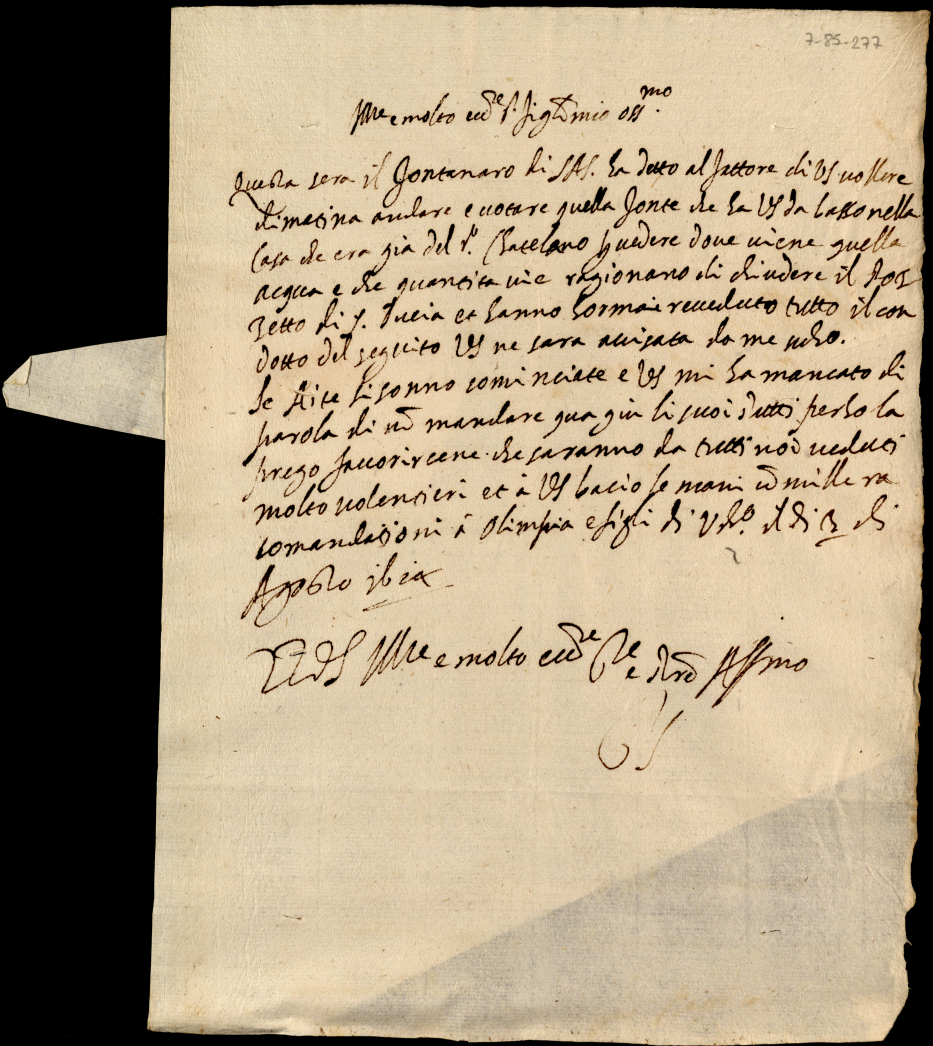 7-85-277
Ill.re e molto ecc.te S.r Sig.r mio oss.mo
Questa sera il fontanaro di SAS. ha detto al fattore di VS vollere
dimatina andare e votare quella fonte che ha VS da basso nella
Casa che era gia del s.r Chatelano vedere dove viene quella
acqua e che quantita vi e ragionano di chiudere il Poz
zetto di S. Lucia et hanno hormai reveduto tutto il con
dotto del seguito VS ne sara avisata da me
le si sonno cominciate e VS mi ha mancato di
parola di nō mandare qua giu li suoi putti perho la
prego favorircene che saranno da tutti noi veduti
molto volentieri et à VS bacio le mani cō mille ra
comandationi à Olimpia e figli di il di di
Agosto
Di VS Ill.re e molto ecc.te